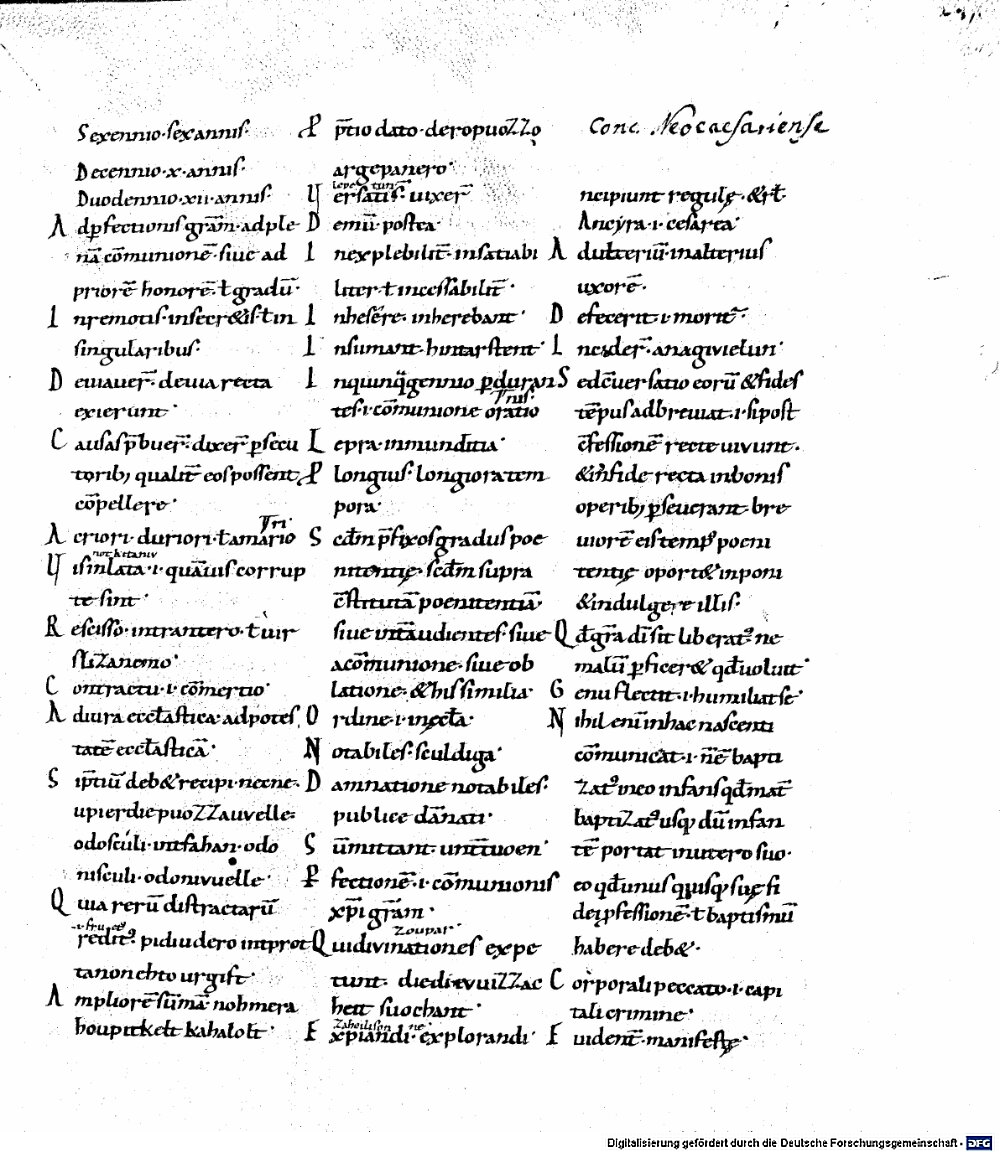 Sexennio· sex annis·
Decennio· x· annis·
Duodennio· xii· annis·
A dp̄fectionis grām· ad ple
nā cōmunionē· siue ad
priorē honorē· ł gradū·
I n remotis· in secr&is· ł in
singularibus·
D euiauer̄· de uia recta
exierunt·
C ausas p̄buer̄· dixer̄ ꝑsecu
torib; qualit̄ eos possent
cōpellere·
A criori· duriori· ł amario
ri·
U
not ketaniv
is inlata· i· quāuis corrup
te sint·
R escisso· intrantero· ł vir
slizanemo·
C ontractu· i· cōmertio·
A d iura eccłastica· ad potes
tatē eccłasticā·
S
deb& recipi· necne·
upierdie puoZZa uuelle
odo sculi· intfahan· odo
ni sculi· odo ni vuelle·
Q uia rerū distractarū
redit᷒· pidiu dero intprot
tanonehto urgift·
A mpliorē sūmā· noh mera
houpitkelt kahalolt·
P p̄tio dato· dero puoZZo
argepanero·
U ersatis· uixer̄
D emū· postea·
I nexplebilit̄· insatiabi
liter· ł incessabilit̄·
I nheser̄e· inherebant·
I nsumant· hintarstent·
I n quinq̄gennio ꝑduran
tes· i· cōmunione oratio
nis·
L epra· inmunditia·
P longius· longiora tem
pora·
S cd̄m p̄fixos gradus poe
nitentię· scd̄m supra
c̄stitutā poenitentiā·
siue int̄ audientes· siue
a cōmunione· siue ob
latione· & his similia·
O rdine· i·
N otabiles· sculdiga·
D amnatione notabiles·
publice dānati·
S ūmittant·
P fectionē· i· cōmunionis
xp̄i grām·
zoupar
Q ui diuinationes expe
tunt· diedi
heit suochant·
E xpiandi· explorandi·
Conc. Neocaesariense
ncipiunt regulę·
Ancyra· i· cesarea·
A dulteriū· in alterius
uxorē·
D efecerit· i· morit᷒·
I
S ed c̄uersatio eorū & fides
tēpus adbreuiat· i· si post
c̄fessionē recte uiuunt·
& in fide recta in bonis
operib; ꝑseuerant· bre
uiorē eis temp᷒ poeni
tentię oport& inponi
& indulgere illis·
Q d̄ grādi sit liberat᷒· ne
malū ꝑficer& qd̄ uoluit·
G enu flectit· i· humiliat se·
N ihil enī in hac nascenti
cōmunicat· i· n̄ ē bapti
zat᷒ in eo infans qd̄ mat̄
baptizat᷒ usq; dū infan
tē portat in utero suo·
eo qd̄ unusq᷒sq; suę fi
dei ꝓfessionē· ł baptismū
habere deb&·
C orporali peccato· i· capi
tali crimine·
E uident̄· manifestę·
Digitalisierung gefördert durch die Deutsche Forschungsgemeinschaft - DFG